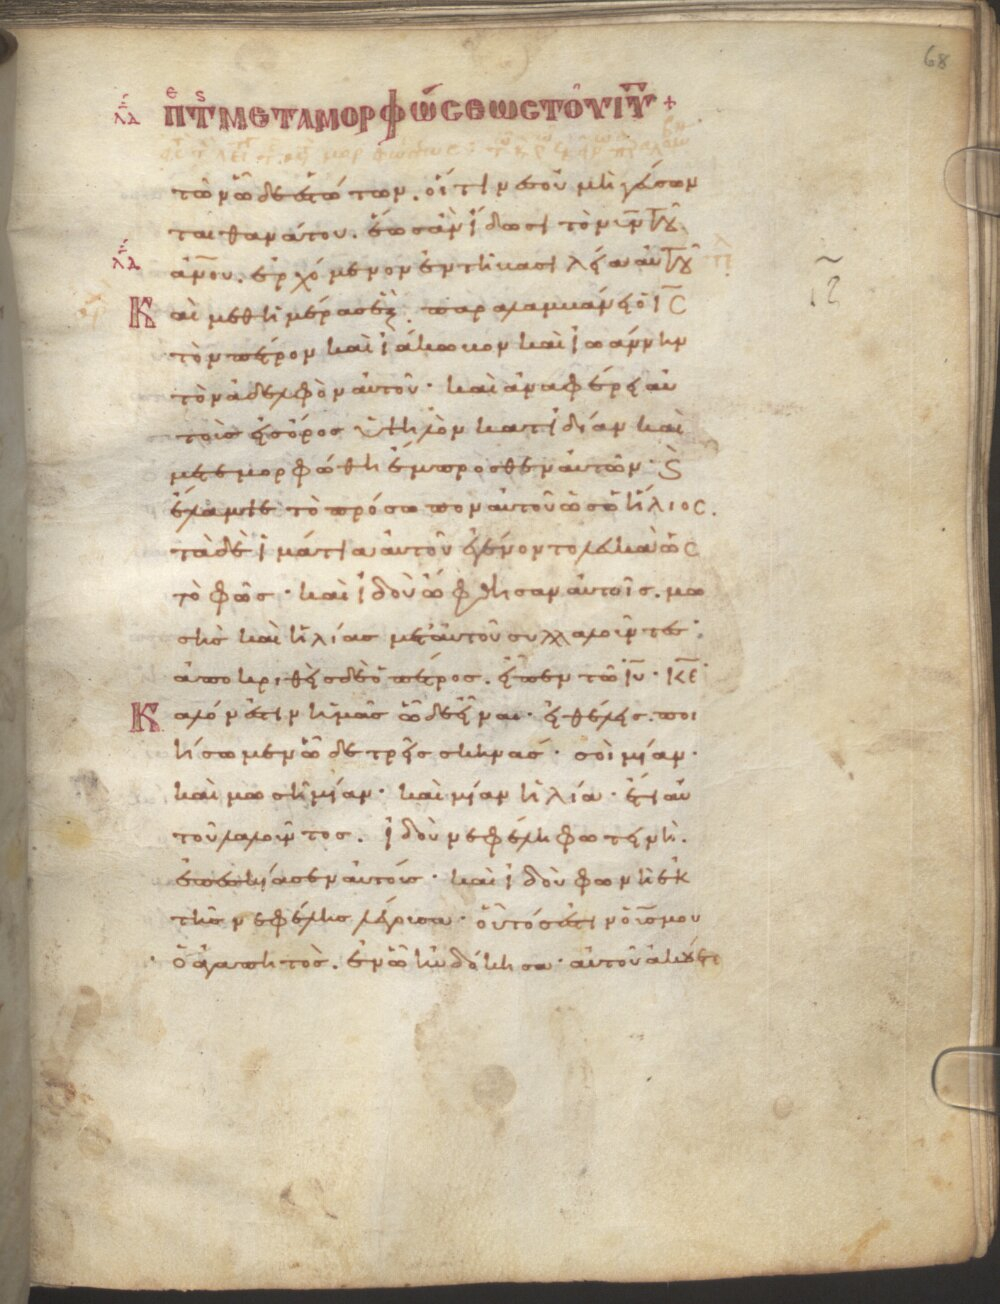 68
λδ πε τς μεταμορφώσεως τοῦ ιυ χυ +
τῶν ὧδε ἑστώτων. οἵτινες οὐ μὴ γεύσων
ται θανάτου. ἕως ἂν ἴδωσι τὸν υἱν τοῦ
ἀνου. ἐρχόμενον ἐν τῆ βασιλεία αὐτοῦ
Καὶ μεθ ἡμέρας ἓξ. παραλαμβάνει ὁ ις
τὸν πέτρον καὶ ἰάκωβον καὶ ἰωάννην
τὸν ἀδελφὸν αὐτοῦ· καὶ ἀναφέρει αὐ
τοὺς εἰς ὄρος ὑψηλὸν κατιδίαν καὶ
μετεμορφώθη ἔμπροσθεν αὐτῶν· καὶ
ἔλαμψε τὸ πρόσωπον αὐτοῦ ὡς ὁ ἥλιος.
τὰ δὲ ἱμάτια αὐτοῦ ἐγένοντο λευκὰ ὡς
τὸ φῶς· καὶ ἰδοὺ ὤφθησαν αὐτοῖς. μω
σῆς καὶ ἡλίας μετ αὐτοῦ συλλαλοῦντες·
ἀποκριθεὶς δὲ ὁ πέτρος. εἶπεν τῶ ιυ· κε
Καλόν ἐστιν ἡμᾶς ὧδε εἶναι· εἰ θέλεις. ποι
ήσωμεν ὧδε τρεῖς σκηνάς· σοὶ μίαν·
καὶ μωσῆ μίαν· καὶ μίαν ἡλία· ἔτι αὐ
τοῦ λαλοῦντος. ἰδοὺ νεφέλη φωτεινὴ.
ἐπεσκίασεν αὐτούς· καὶ ἰδοὺ φωνὴ ἐκ
τῆς νεφέλης λέγουσα· οὗτός ἐστιν ὁ υἱς μου
ὁ ἀγαπητὸς. ἐν ὧ ηὐδόκησα· αὐτοῦ ἀκούετε